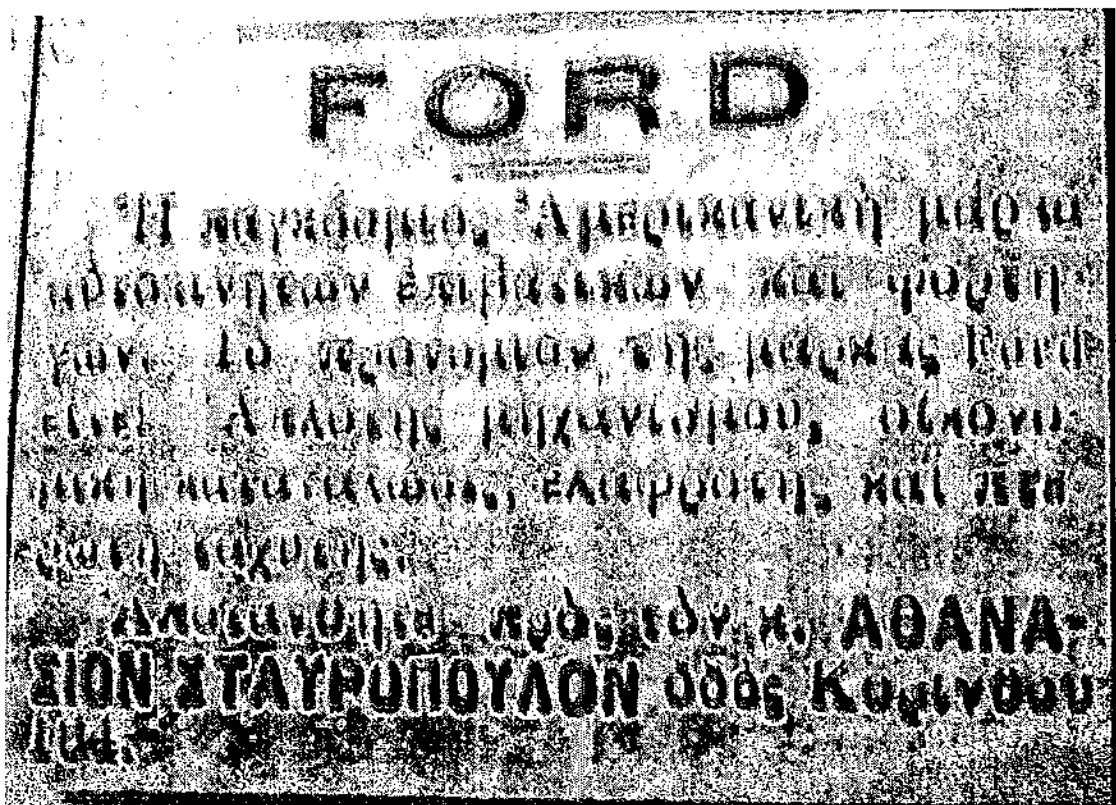 FORD
Ἡ παγκόσμιος Ἀμερικανικὴ μάρκα
αὐτοκινήτων ἐπιβατικῶν καὶ φορτη-
γῶν. Τὸ προνόμιον τῆς μάρκας Ford
εἶναι Ἁπλότης μηχανισμοῦ, οἰκονο-
μικὴ κατανάλωσις, ἐλαφρότης καὶ
ταχύτης.
Ἀποτανθῆτε πρὸς τὸν κ. ΑΘΑΝΑ-
ΣΙΟΝ ΣΤΑΥΡΟΠΟΥΛΟΝ ὁδὸς Κορίνθου